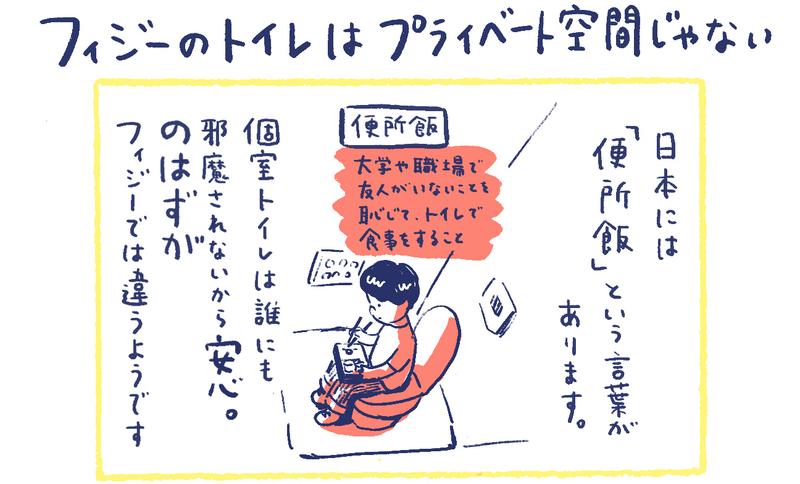 フィジーのトイレはプライベート空間じゃない
日本には
「便所飯」という言葉が
あります。
便所飯
大学や職場で
友人がいないことを
恥じて、トイレで
食事をすること
個室トイレは誰にも
邪魔されないから安心。
のはずが
フィジーでは違うようです